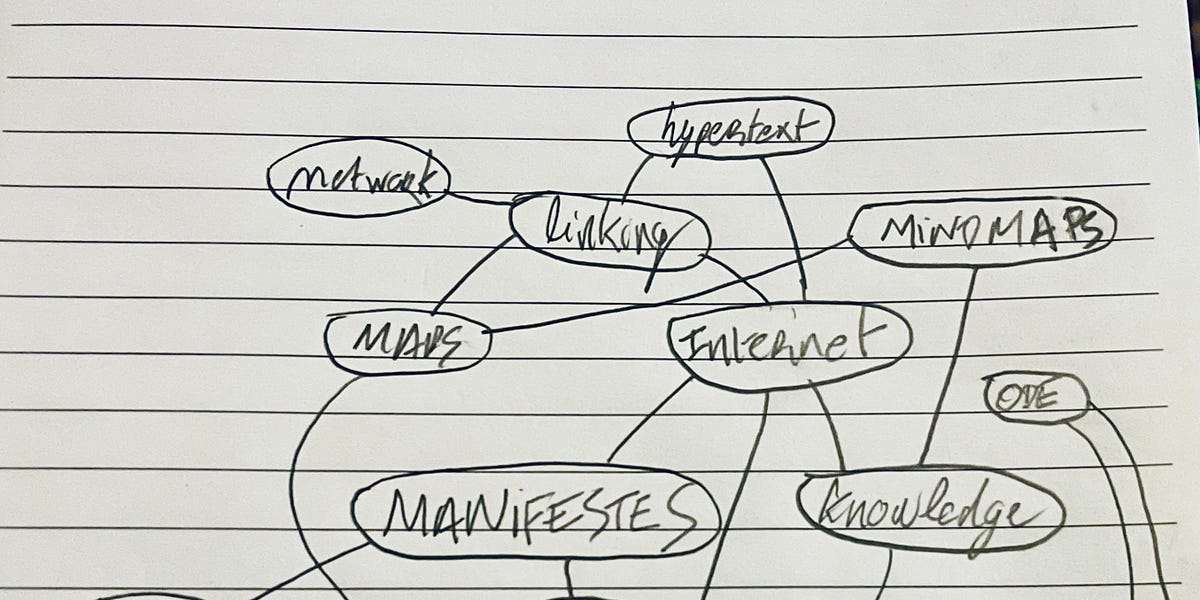 hypertext
network
linking
MINDMAPS
MAPS
Internet
ODE
MANIFESTES
Knowledge